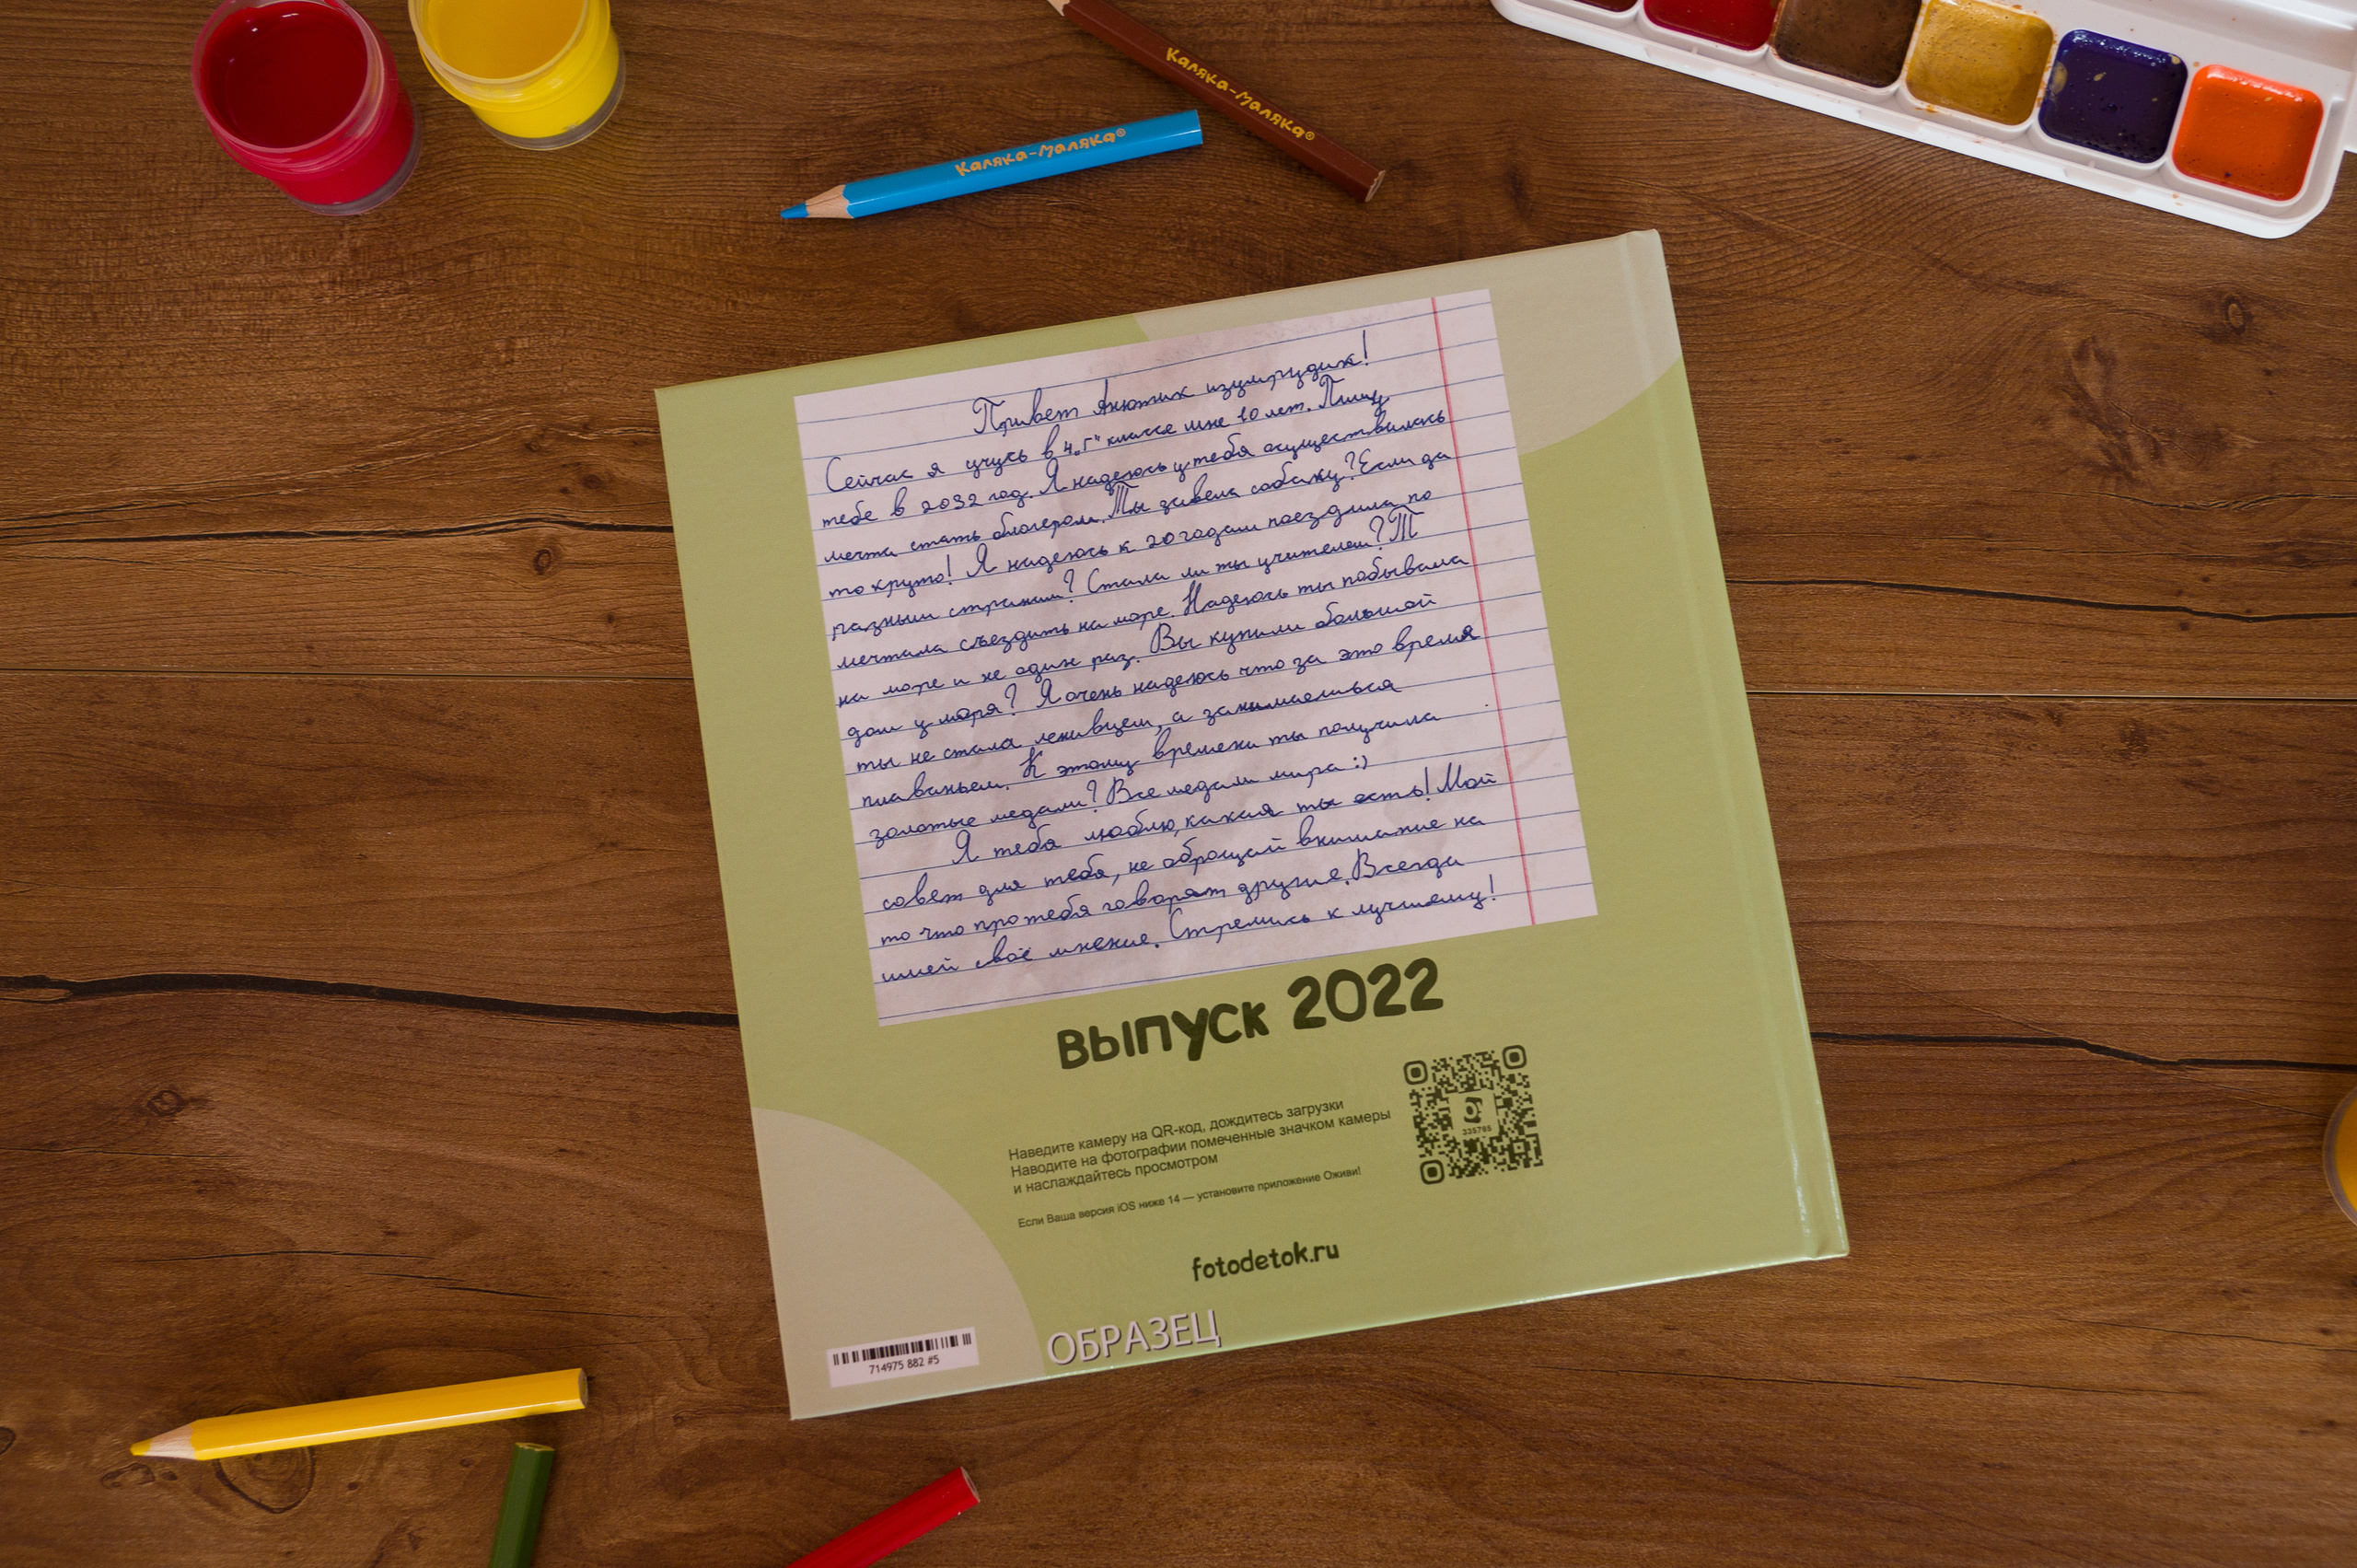 Каляка-Маляка®
Каляка-Маляка®
Привет Анютик изумрудик!
Сейчас я учусь в 4„Г" классе мне 10 лет. Пишу
тебе в 2032 год. Я надеюсь у тебя осуществилась
мечта стать блогером. Ты завела собаку? Если да
то круто! Я надеюсь к 20 годам поездила по
разным странам? Стала ли ты учителем? Т
мечтала съездить на море. Надеюсь ты побывала
на море и не один раз. Вы купили большой
дом у моря? Я очень надеюсь что за это время
ты не стала ленивцем, а занимаешься
плаваньем. К этому времени ты получила
золотые медали? Все медали мира :)
Я тебя люблю, какая ты есть! Мой
совет для тебя, не обращай внимание на
то что про тебя говорят другие. Всегда
имей своё мнение. Стремись к лучшему!
выпуск 2022
Наведите камеру на QR-код, дождитесь загрузки
Наводите на фотографии помеченные значком камеры
и наслаждайтесь просмотром
335785
Если Ваша версия iOS ниже 14 — установите приложение Оживи!
fotodetok.ru
ОБРАЗЕЦ
714975 882 #5